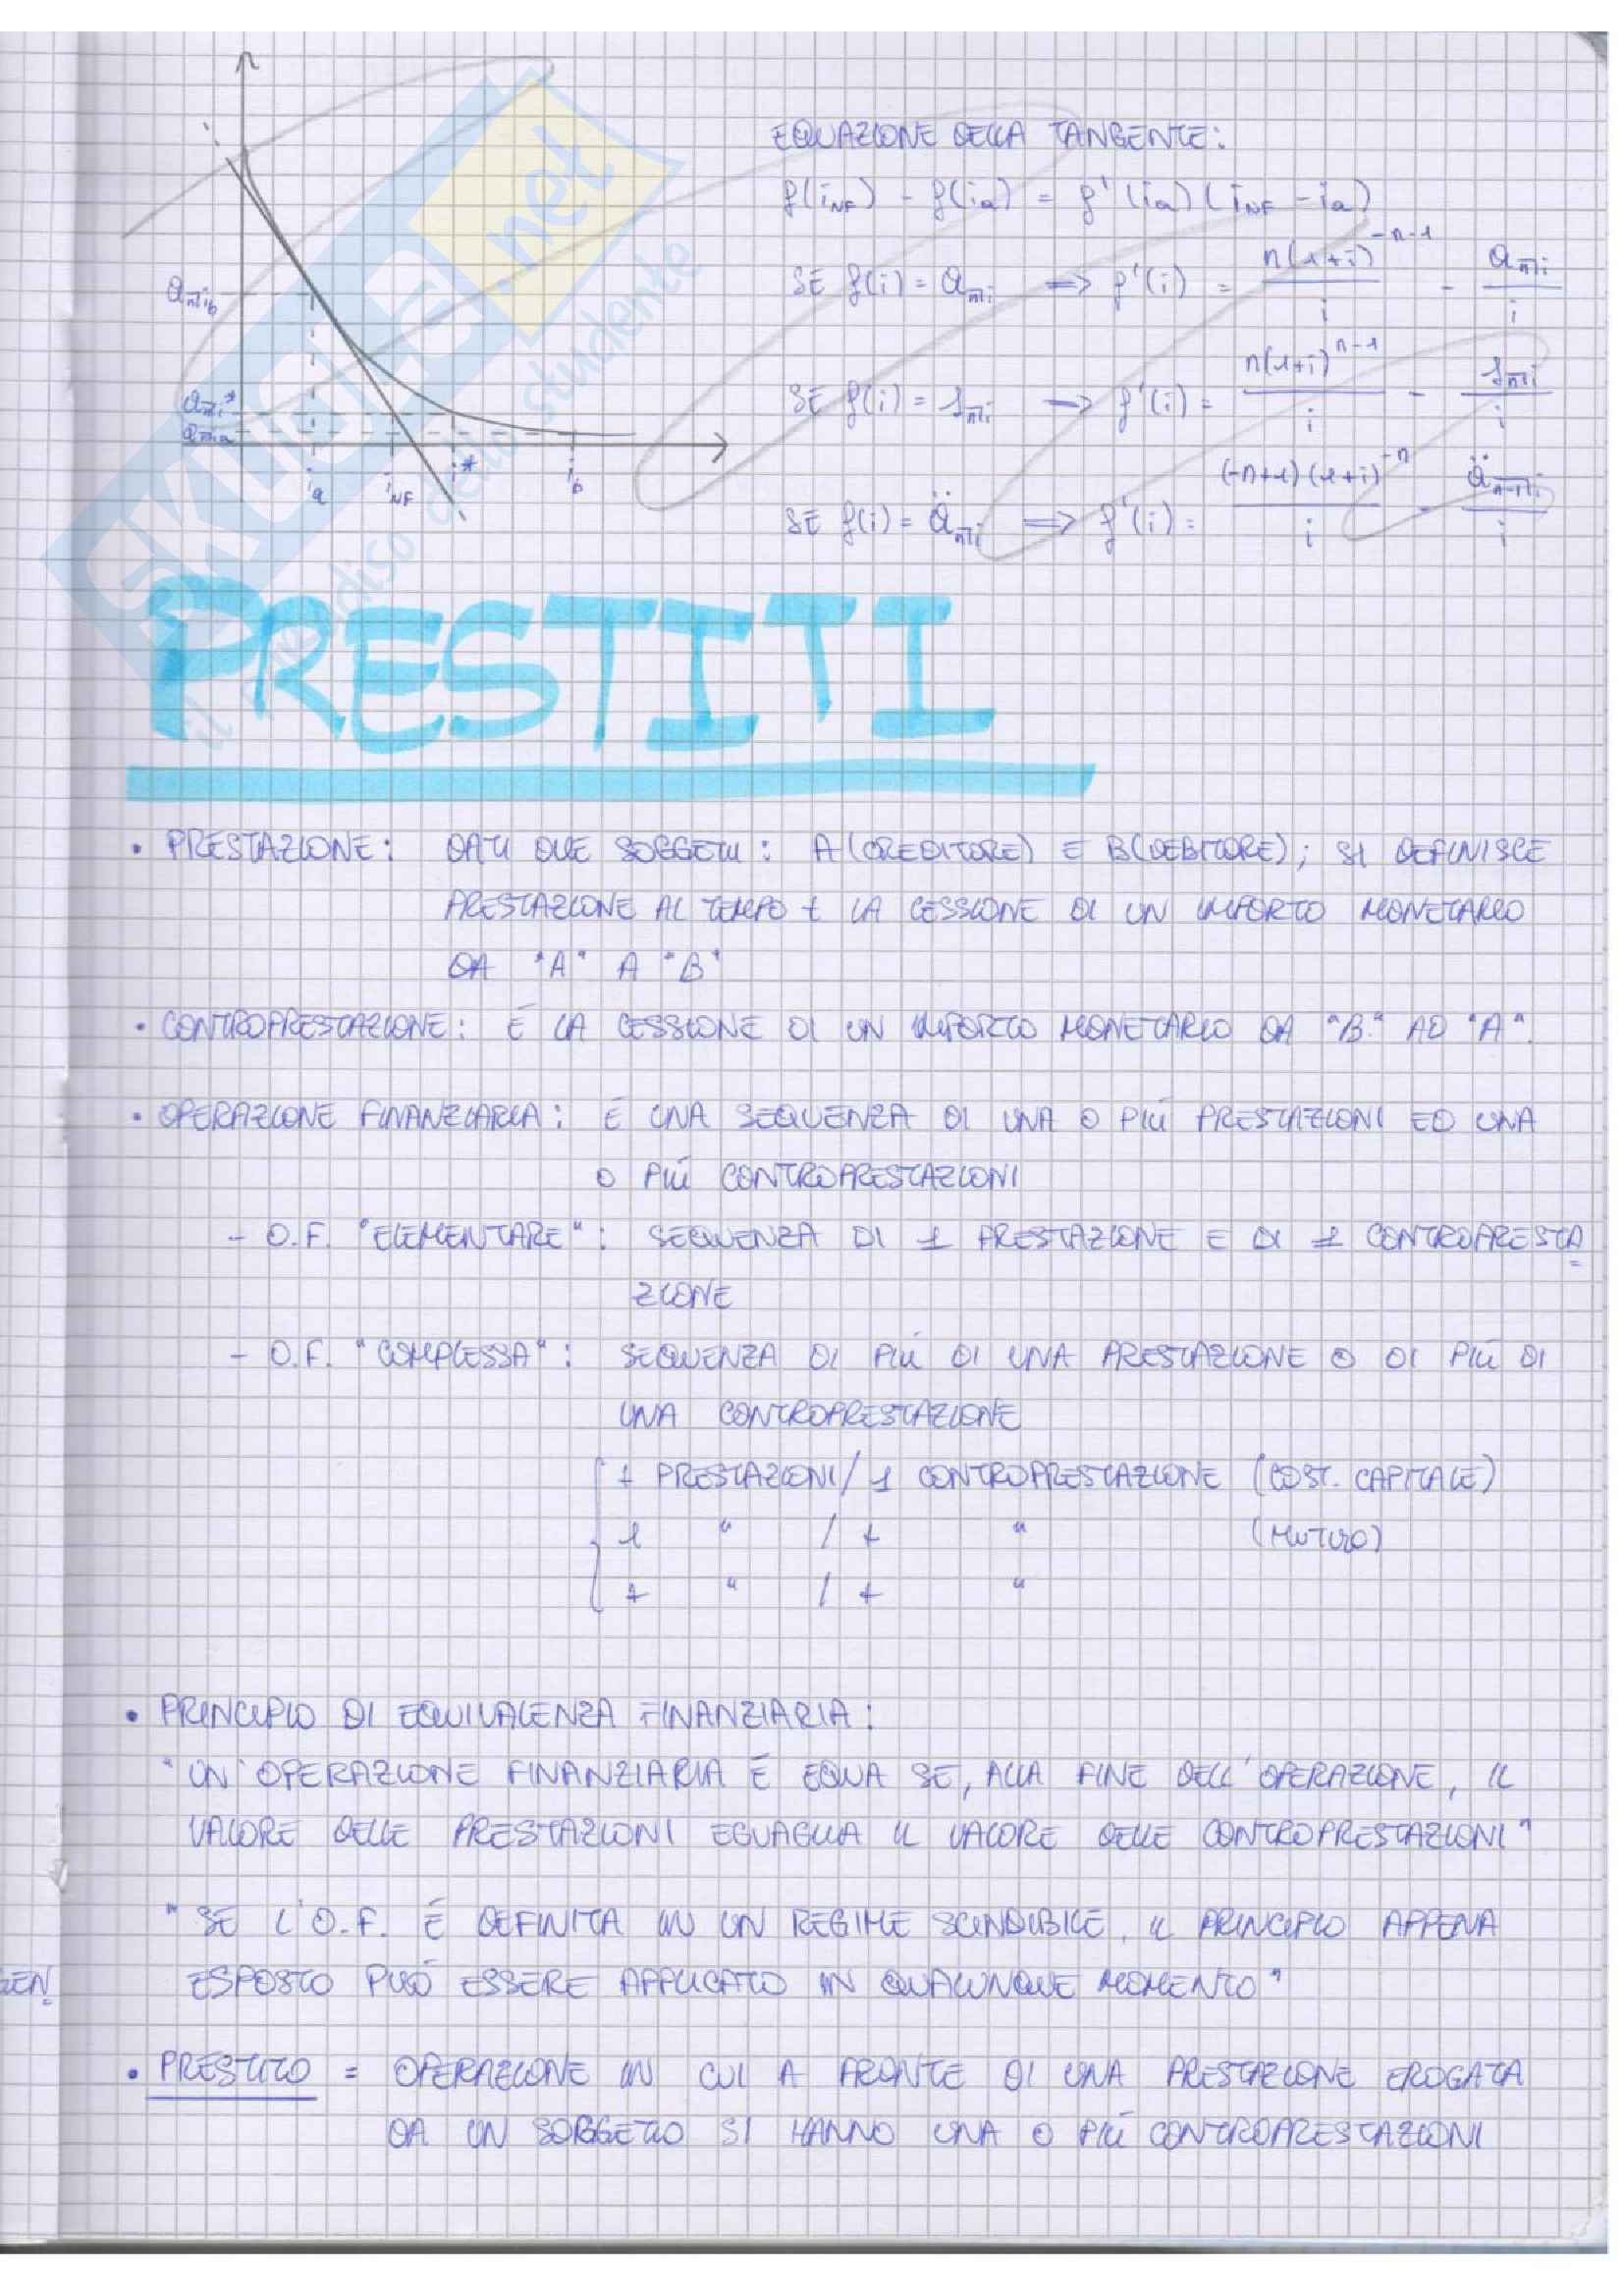 EQUAZIONE DELLA TANGENTE:
f(i_NF) - f(i_a) = f'(i_a)(i_NF - i_a)
SE f(i) = a_n̅|i ⟹ f'(i) = n(1+i)^(-n-1) / i - a_n̅|i / i
SE f(i) = s_n̅|i ⟹ f'(i) = n(1+i)^(n-1) / i - s_n̅|i / i
SE f(i) = ä_n̅|i ⟹ f'(i) = (-n+1)(1+i)^(-n) / i - ä_n-1|i / i
a_n̅|i_b
a_n̅|i*
a_n̅|i_a
i_a i_NF i* i_b
SKUOLA.net
il paradiso dello studente
PRESTITI
• PRESTAZIONE: DATI DUE SOGGETTI: A (CREDITORE) E B (DEBITORE); SI DEFINISCE
PRESTAZIONE AL TEMPO t LA CESSIONE DI UN IMPORTO MONETARIO
DA "A" A "B"
• CONTROPRESTAZIONE: È LA CESSIONE DI UN IMPORTO MONETARIO DA "B" AD "A".
• OPERAZIONE FINANZIARIA: È UNA SEQUENZA DI UNA O PIÙ PRESTAZIONI ED UNA
O PIÙ CONTROPRESTAZIONI
- O.F. "ELEMENTARE": SEQUENZA DI 1 PRESTAZIONE E DI 1 CONTROPRESTA
ZIONE
- O.F. "COMPLESSA": SEQUENZA DI PIÙ DI UNA PRESTAZIONE O DI PIÙ DI
UNA CONTROPRESTAZIONE
+ PRESTAZIONI / 1 CONTROPRESTAZIONE (COST. CAPITALE)
1 " / + " (MUTUO)
+ " / + "
• PRINCIPIO DI EQUIVALENZA FINANZIARIA:
"UN'OPERAZIONE FINANZIARIA È EQUA SE, ALLA FINE DELL'OPERAZIONE, IL
VALORE DELLE PRESTAZIONI EGUAGLIA IL VALORE DELLE CONTROPRESTAZIONI"
"SE L'O.F. È DEFINITA IN UN REGIME SCINDIBILE, IL PRINCIPIO APPENA
ESPOSTO PUÒ ESSERE APPLICATO IN QUALUNQUE MOMENTO"
• PRESTITO = OPERAZIONE IN CUI A FRONTE DI UNA PRESTAZIONE EROGATA
DA UN SOGGETTO SI HANNO UNA O PIÙ CONTROPRESTAZIONI